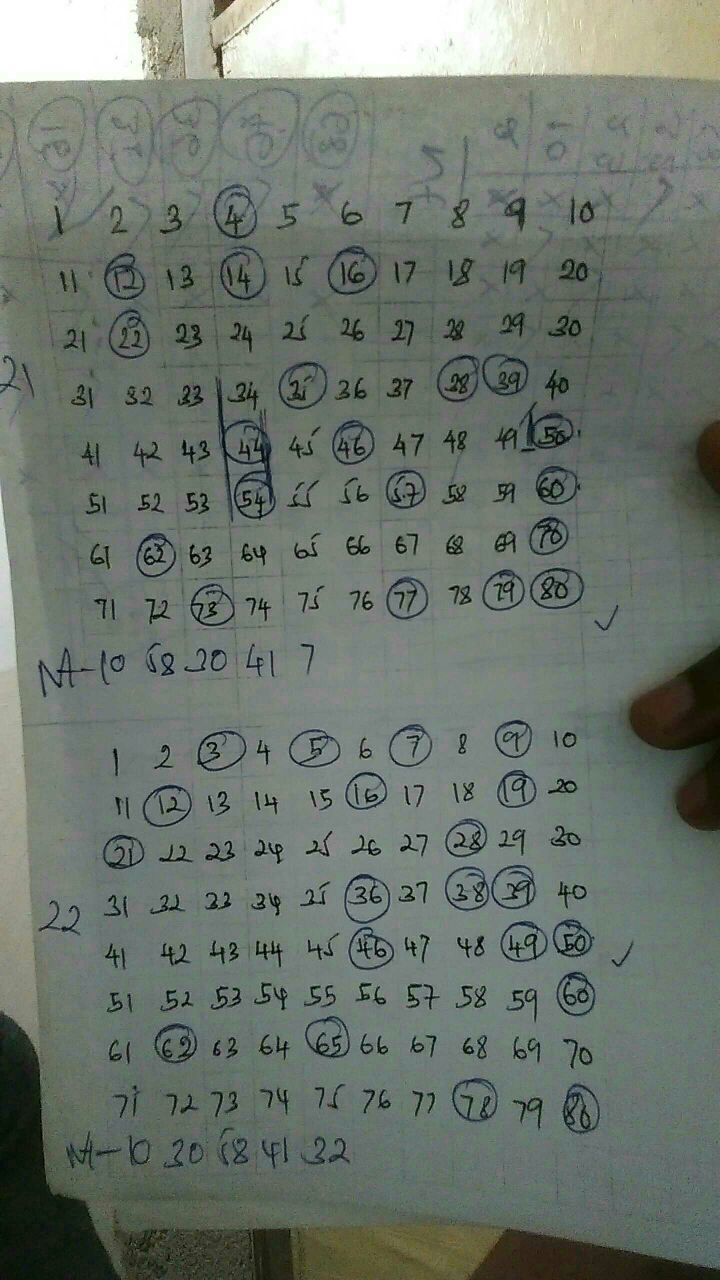 1 2 3 4 5 6 7 8 9 10
11 12 13 14 15 16 17 18 19 20
21 22 23 24 25 26 27 28 29 30
21
31 32 33 34 35 36 37 38 39 40
41 42 43 44 45 46 47 48 49 50
51 52 53 54 55 56 57 58 59 60
61 62 63 64 65 66 67 68 69 70
71 72 73 74 75 76 77 78 79 80
NA-10 58 30 41 7
1 2 3 4 5 6 7 8 9 10
11 12 13 14 15 16 17 18 19 20
21 22 23 24 25 26 27 28 29 30
22
31 32 33 34 35 36 37 38 39 40
41 42 43 44 45 46 47 48 49 50
51 52 53 54 55 56 57 58 59 60
61 62 63 64 65 66 67 68 69 70
71 72 73 74 75 76 77 78 79 80
NA-10 30 58 41 32